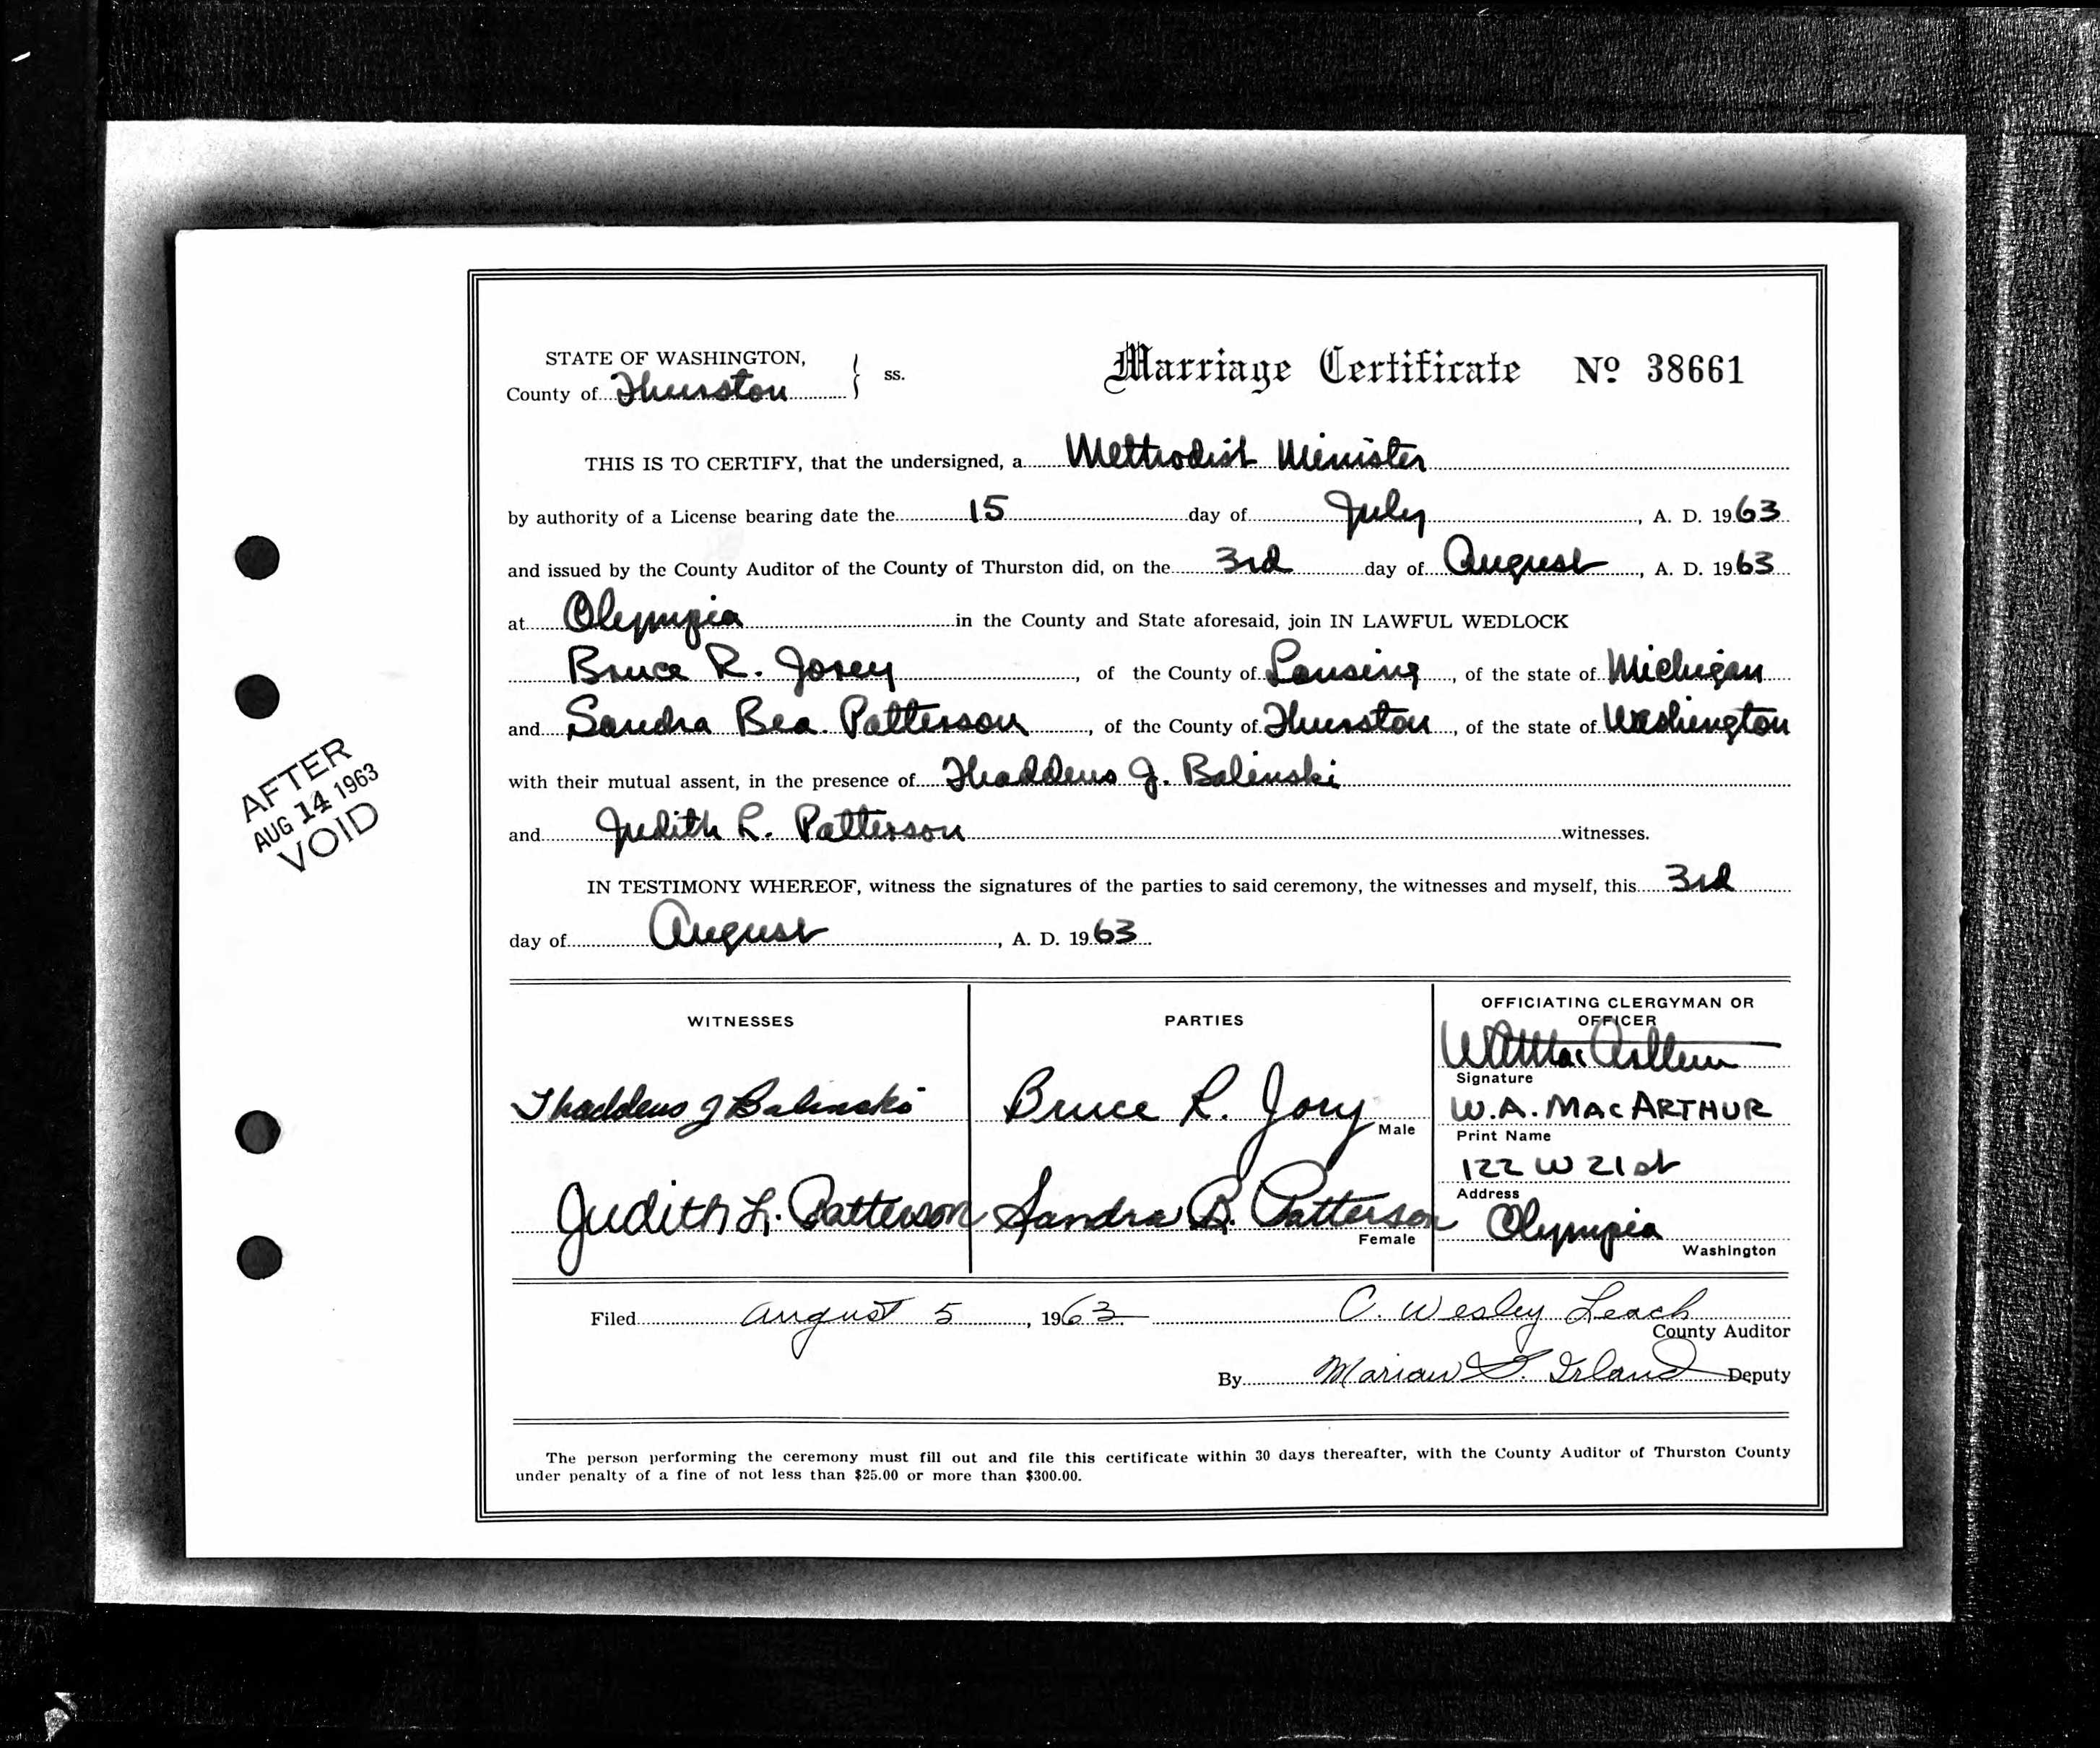 STATE OF WASHINGTON,
County of Thurston ss.
Marriage Certificate Nº 38661
THIS IS TO CERTIFY, that the undersigned, a Methodist Minister
by authority of a License bearing date the 15 day of July, A. D. 1963
and issued by the County Auditor of the County of Thurston did, on the 3rd day of August, A. D. 1963
at Olympia in the County and State aforesaid, join IN LAWFUL WEDLOCK
Bruce R. Jorey, of the County of Lansing, of the state of Michigan
and Sandra Bea Patterson, of the County of Thurston, of the state of Washington
with their mutual assent, in the presence of Thaddeus J. Balinski
and Judith L. Patterson witnesses.
IN TESTIMONY WHEREOF, witness the signatures of the parties to said ceremony, the witnesses and myself, this 3rd
day of August, A. D. 1963
AFTER
AUG 14 1963
VOID
WITNESSES
Thaddeus J Balinski
Judith L. Patterson
PARTIES
Bruce R. Jory
Male
Sandra B. Patterson
Female
OFFICIATING CLERGYMAN OR
OFFICER
W A MacArthur
Signature
W.A. MACARTHUR
Print Name
122 W 21st
Address
Olympia
Washington
Filed August 5, 1963 C. Wesley Leach
County Auditor
By Marian G. Irland Deputy
The person performing the ceremony must fill out and file this certificate within 30 days thereafter, with the County Auditor of Thurston County
under penalty of a fine of not less than $25.00 or more than $300.00.